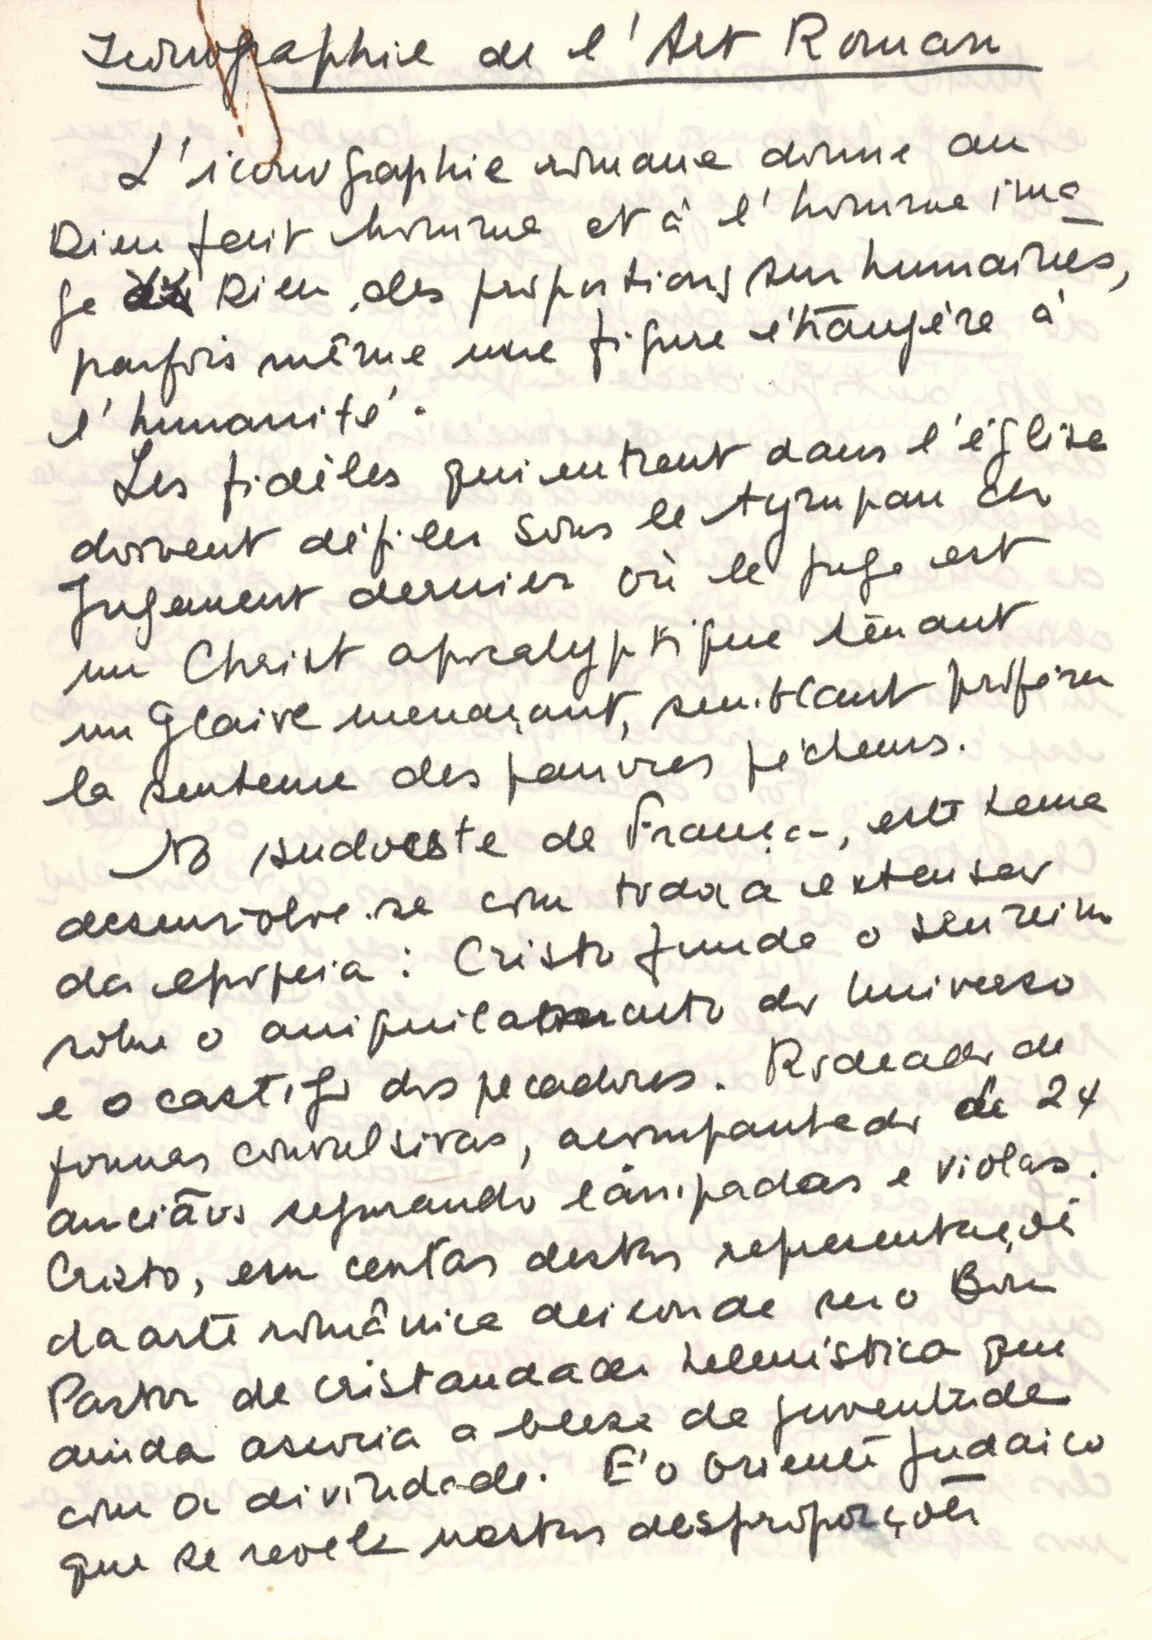 Iconographie de l'Art Roman
L'iconographie romane donne au
Dieu fait homme et à l'homme ima
ge Dieu, des proportions sur humaines,
parfois même une figure étrangère à
l'humanité.
Les fidèles qui entrent dans l'église
doivent défiler sous le tympan du
Jugement dernier où le juge est
un Christ apocalyptique tenant
un glaive menaçant, semblant proférer
la sentence des pauvres pécheurs.
No sudoeste de França, este tema
desenvolve-se com toda a extensão
da epopeia: Cristo funda o seu reino
sôbre o aniquilamento do Universo
e o castigo dos pecadores. Rodeado de
formas convulsivas, acompanhado de 24
anciãos segurando lâmpadas e violas.
Cristo, em certas destas representações
da arte românica desconde ser o Bom
Pastor de cristandade helenística que
ainda associa a beleza da juventude
com a divindade. É o Oriente Judaico
que se revela nestas desproporções